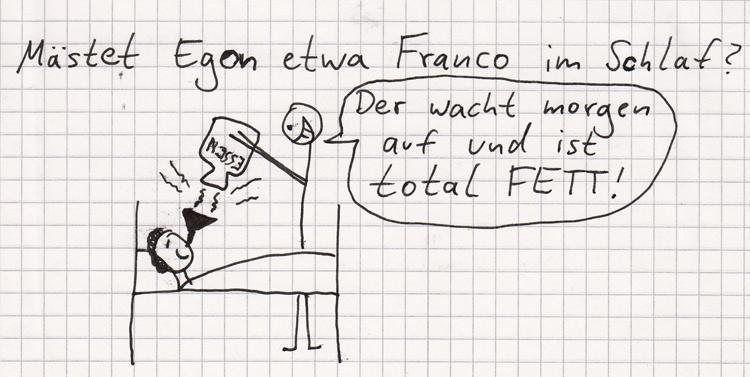 Mästet Egon etwa Franco im Schlaf?
Der wacht morgen
auf und ist
total FETT!
ESSEN